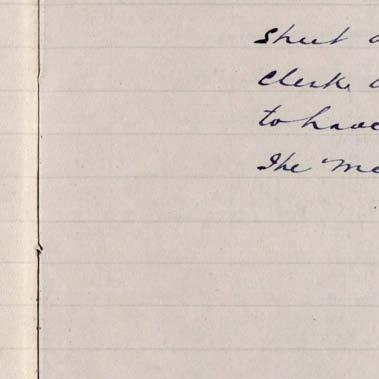 Sheet
Clerk,
to have
The